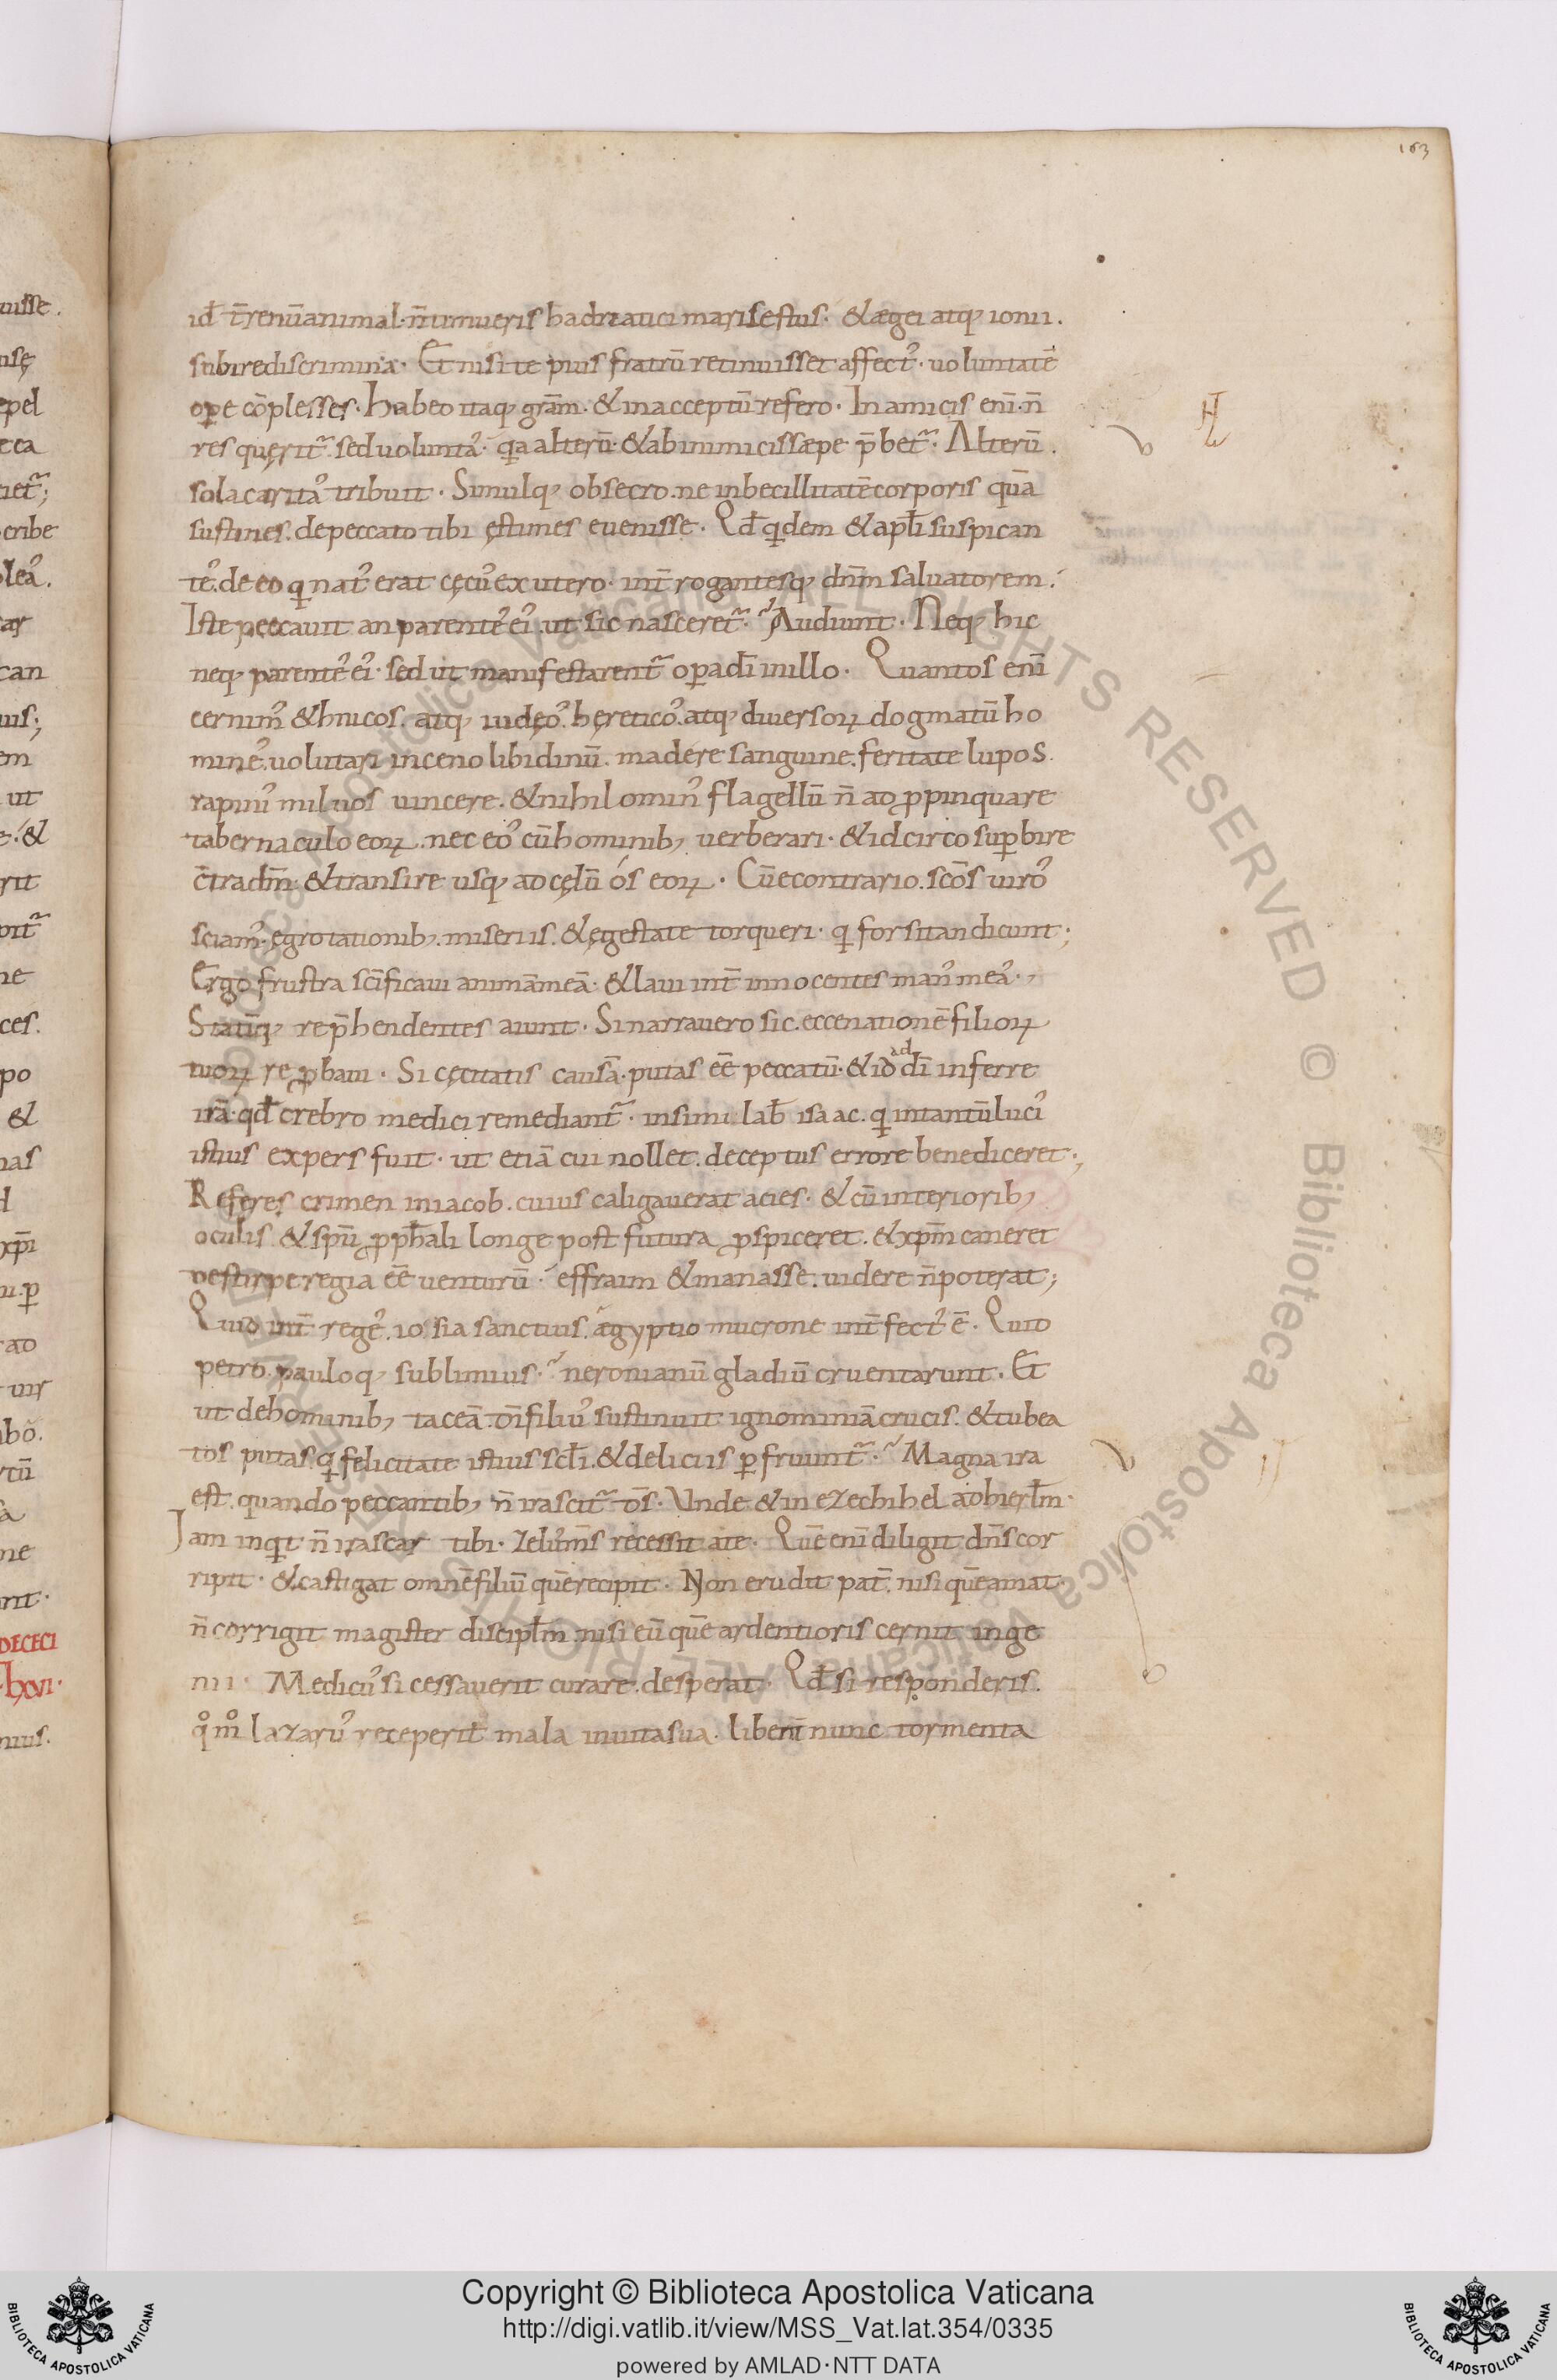 163
id̄ t̄renū animal. n̄ timueris hadriatici maris estus. & ægei atq; ionii.
subire discrimina. Et nisi te pius fratrū retinuisset affect᾽. uoluntatē
oꝑe cōplesses. Habeo itaq; gr̄am. & in acceptū refero. In amicis eni̅. n̄
res quęrit᷑. sed uolunta᾽. qa alterū. & ab inimicis sæpe p̄bet᷑. Alterū.
sola carita᾽ tribuit. Simulq; obsecro. ne inbecillitatē corporis quā
sustines. de peccato tibi ęstimes euenisse. Qd̄ qdem & apl̄i suspican
te᾽. de eo q nat᾽ erat cęcu᾽ ex utero. int̄rogantesq; dn̄m saluatorem.
Iste peccauit an parente᾽ ei᾽. ut sic nasceret᷑. Audiunt. Neq; hic
neq; parente᾽ ei᾽. sed ut manifestarent᷑ oꝑa dī in illo. Quantos enī
cernim᾽ & hnicos. atq; iudęo᾽. hęretico᾽. atq; diuersoꝝ dogmatū ho
mine᾽. uolutari in ceno libidinū. madere sanguine. feritate lupos.
rapini᾽ miluos uincere. & nihilomin᾽ flagellū n̄ adꝓpinquare
tabernaculo eoꝝ. nec eo᾽ cū hominib; uerberari. & idcirco suꝑbire
c̄tra dm̄. & transire usq; ad cęlū ós eoꝝ. Cū econtrario. sc̄os uiro᾽
sciam᾽. ęgrotationib;. miseriis. & ęgestate torqueri. q forsitan dicunt;
Ergo frustra sc̄ificaui animā meā. & laui int̄ innocentes man᾽ mea᾽.,
Statīq; rep̄hendentes aiunt. Si narrauero sic. ecce nationē filioꝝ
tuoꝝ reꝓbaui. Si cęcitatis causā. putas ēē peccatū. & id ad dī inferre
irā. qd̄ crebro medici remediant᷑. insimulab̄ isaac. q in tantū luci᾽
istius expers fuit. ut etiā cui nollet. deceptus errore benediceret.,
Referes crimen in iacob. cuius caligauerat acies. & cū interiorib;
oculis. & spū ꝓph̄ali longe post futura ꝓspiceret. & xp̄m caneret
de stirpe regia ēē uenturū. effraim & manasse. uidere n̄ poterat;
Quid int̄ rege᾽. iosia sanctius. ægyptio mucrone int̄fect᾽ ē. Quid
petro. pauloq; sublimius. neronianū gladiū cruentarunt. Et
ut de hominib; taceā. dī filiu᾽ sustinuit ignominiā crucis. & tu bea
tos putas. q felicitate istius scl̄i. & deliciis ꝑfruunt᷑. Magna ira
est. quando peccantib; n̄ irascit᷑ d̄s. Unde & in ezechihel ad hierl̄m.
Iam inqt n̄ irascar tibi. zelu᾽ m̄s recessit a te. Quē enī diligit dn̄s cor
ripit. & castigat omnē filiū quē recipit. Non erudit pat̄. nisi quē amat.
n̄ corrigit magister discipl̄m. nisi eū quē ardentioris cernit inge
nii. Medicu᾽ si cessauerit curare. desperat. Qd̄ si responderis.
qͦmͦ lazaru᾽ receperit mala in uita sua. libent̄ nunc tormenta
Copyright © Biblioteca Apostolica Vaticana
http://digi.vatlib.it/view/MSS_Vat.lat.354/0335
powered by AMLAD·NTT DATA
BIBLIOTECA APOSTOLICA VATICANA
BIBLIOTECA APOSTOLICA VATICANA